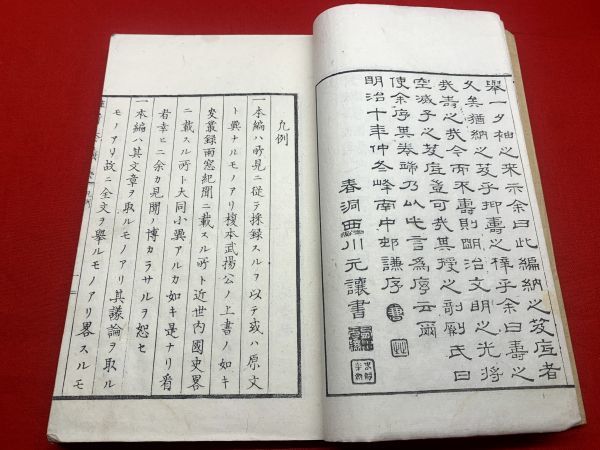 舉一夕袖之來示余曰此編納之笈底者
久矣猶納之笈乎抑壽之梓乎余曰壽之
我壽之我今而不壽則明治文明之光將
空滅于之笈底㦲可我其授之剞劂氏曰
使余序其卷端乃以此言為序云爾
明治十年仲冬峰南中邨謙序
春洞西川元讓書
凡例
一本編ハ所見ニ從テ採録スルヲ以テ或ハ原文
ト異ナルモノアリ榎本武揚公ノ上書ノ如キ
叢録雨窓紀聞ニ載スル所ト近世内國史畧
ニ載スル所ト大同小異アルカ如キ是ナリ看
者幸ヒニ余カ見聞ノ博カラサルヲ恕セ
一本編ハ其文章ヲ取ルモノアリ其議論ヲ取ル
モノアリ故ニ全文ヲ舉ルモノアリ畧スルモ